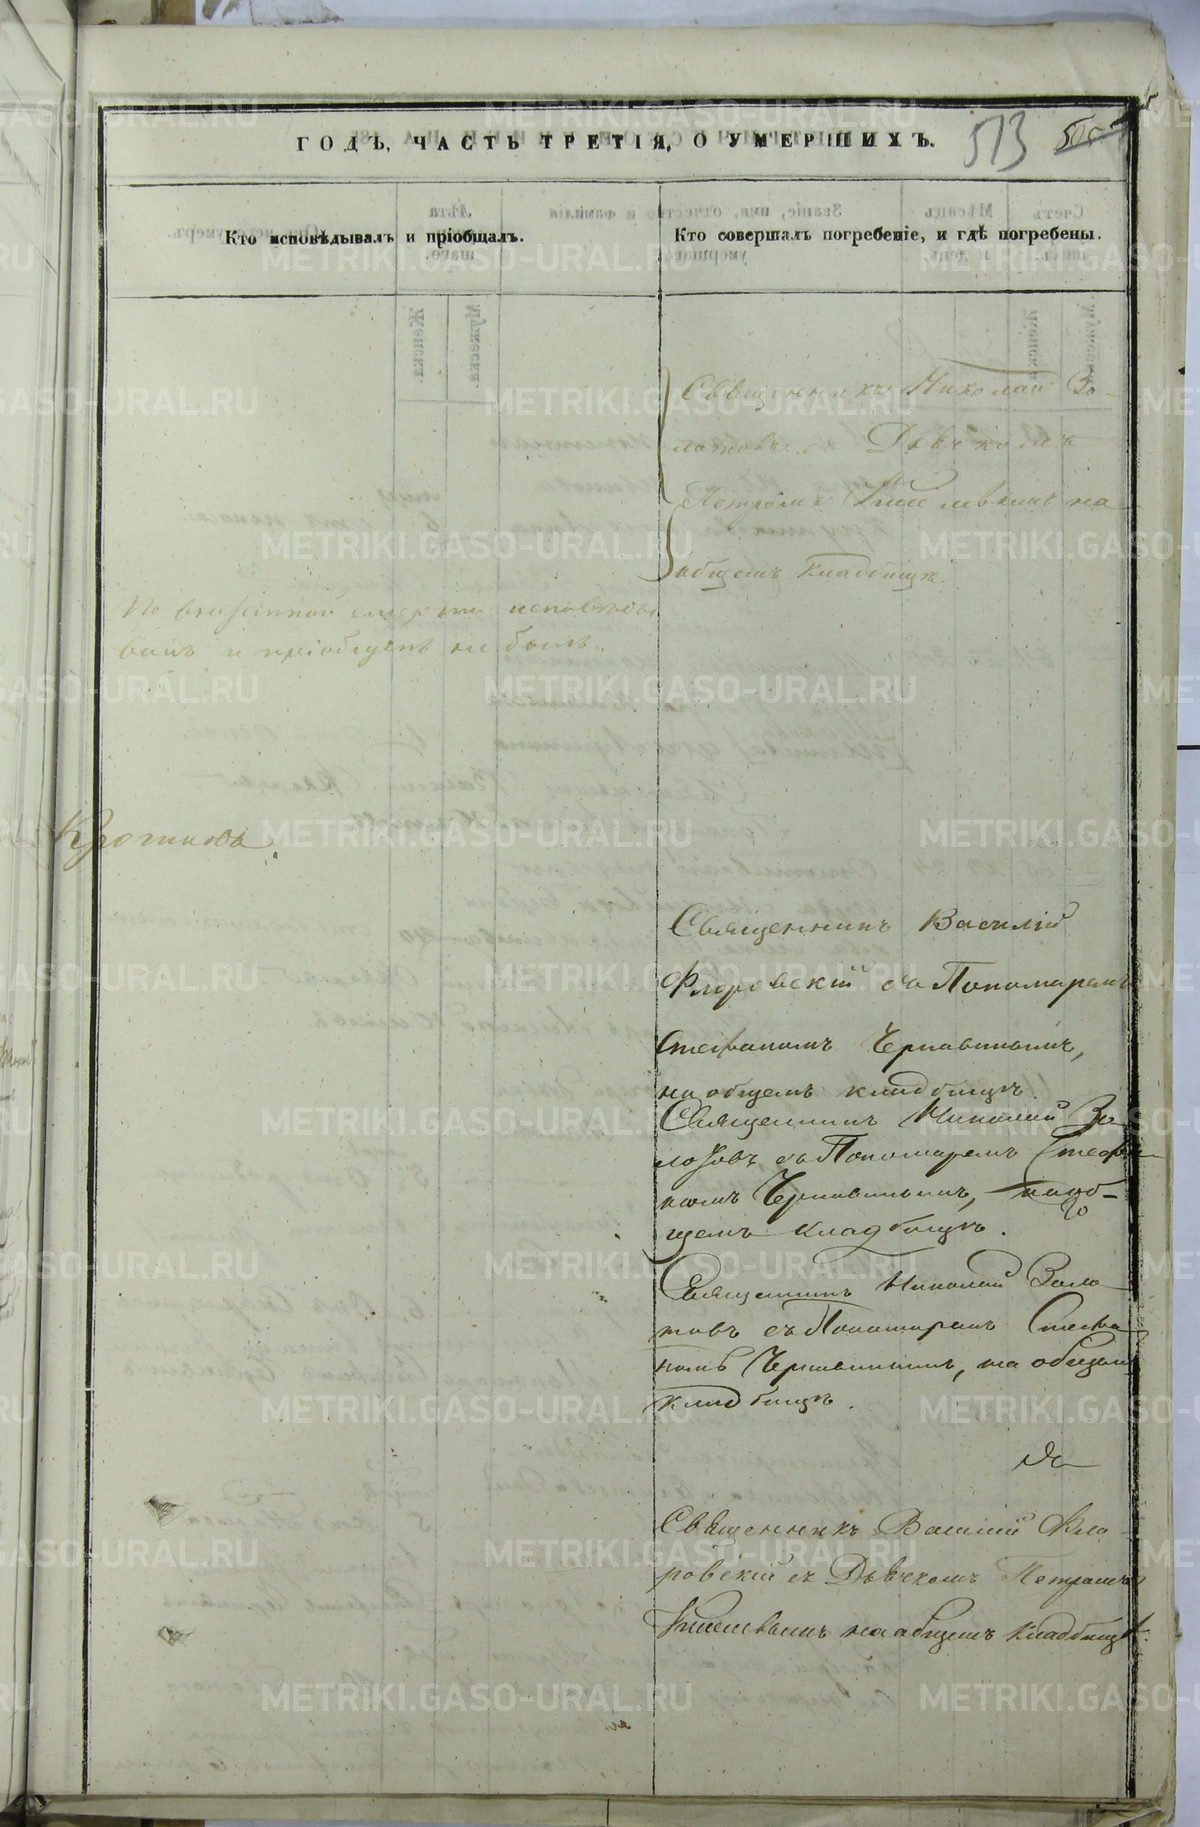 ГОДЪ, ЧАСТЬ ТРЕТІЯ, О УМЕРШИХЪ.
513
Кто исповѣдывалъ и пріобщалъ.
Кто совершалъ погребеніе, и гдѣ погребены.
Священникъ Николай Зо-
лотовъ съ Дьячкомъ
Петромъ Киселевымъ на
общемъ кладбищѣ.
По внезапной смерти исповѣды
ванъ и пріобщенъ не былъ.
Священникъ Василій
Флоровскій съ Пономаремъ
Стефаномъ Чернавинымъ,
на общемъ кладбищѣ.
Священникъ Николай Зо
лотовъ съ Пономаремъ Стефа
номъ Чернавинымъ, на об-
щемъ кладбищѣ.
Священникъ Николай Золо
товъ съ Пономаремъ Стефа
номъ Чернавинымъ, на общемъ
кладбищѣ.
Священникъ Василій Фло-
ровскій съ Дьячкомъ Петромъ
Киселевымъ на общемъ кладбищѣ.
METRIKI.GASO-URAL.RU